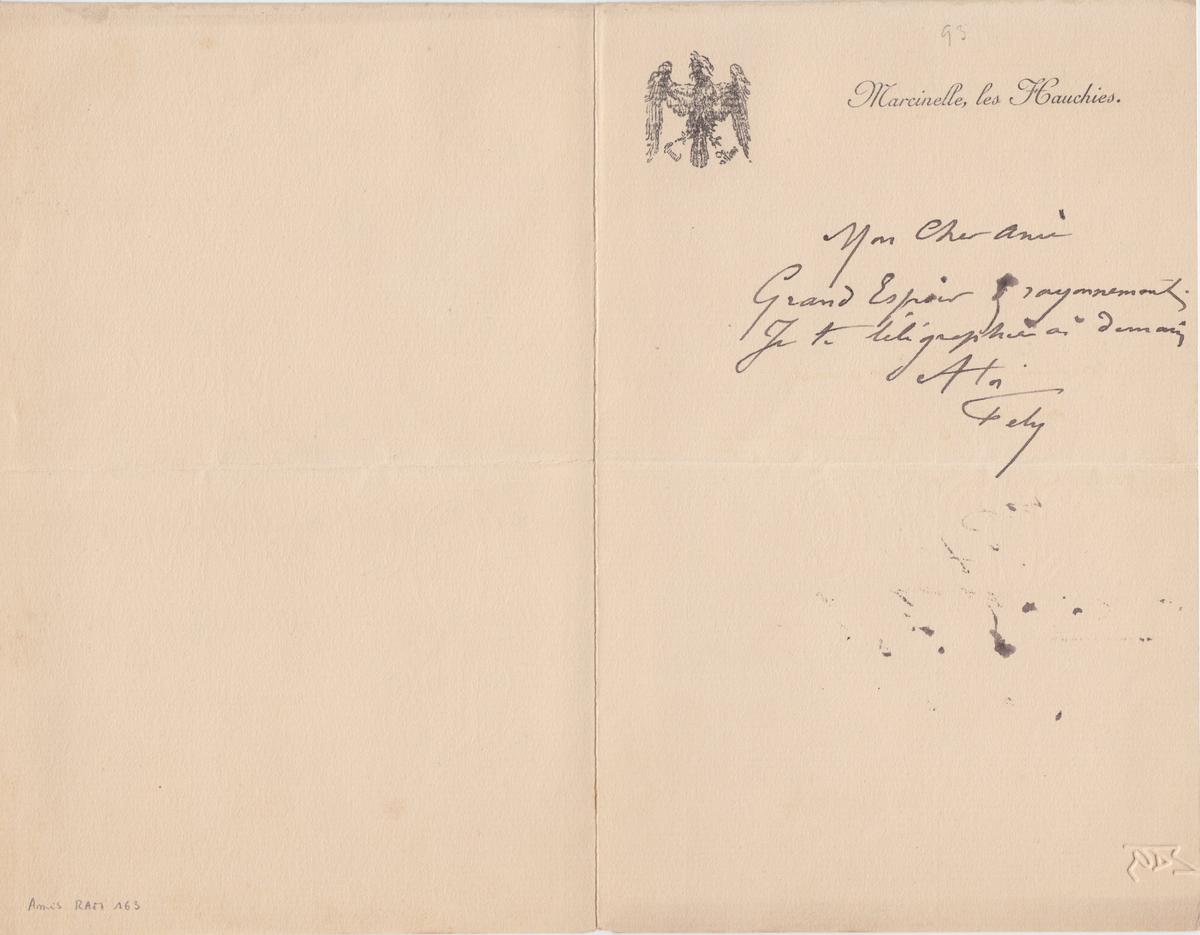 93
Marcinelle, les Hauchies.
Mon Cher Ami
Grand Espoir & rayonnement,
Je te télégraphierai demain
A toi
Fely
Amis RAM 163